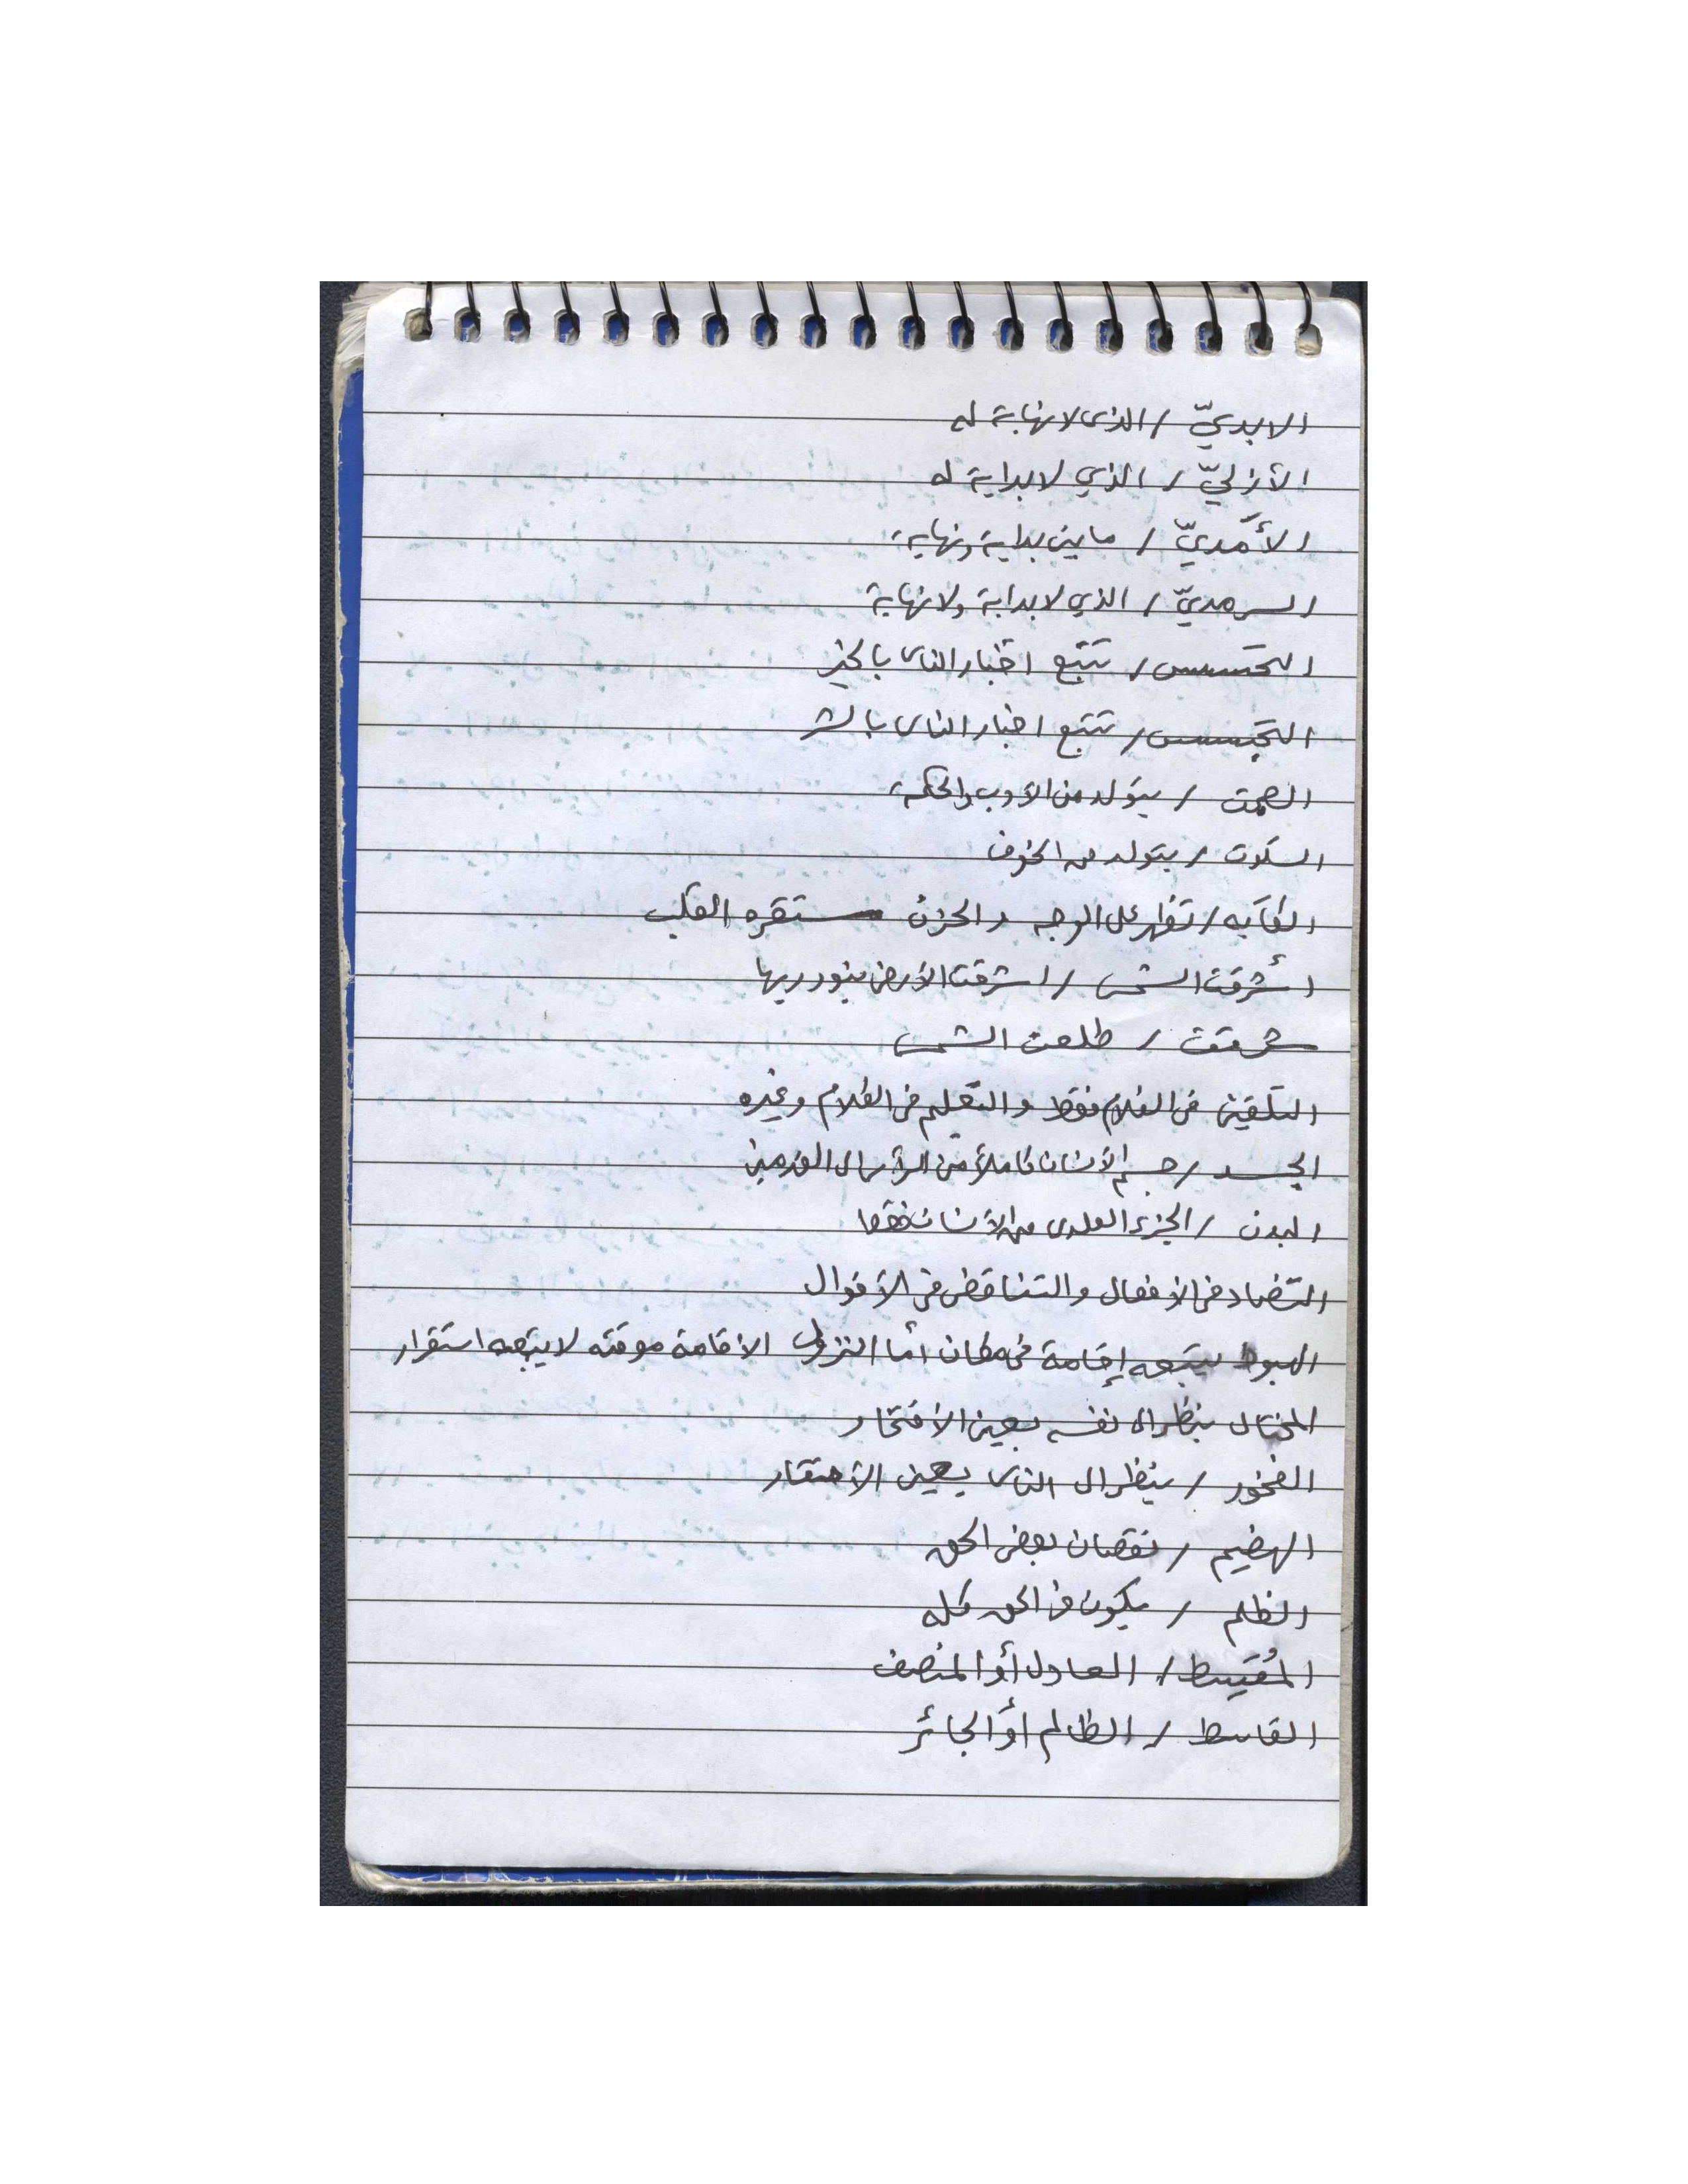 الابديّ / الذى لا نهاية له
الأزليّ / الذي لا بداية له
الأَمَديّ / ما بين بداية ونهاية
السرمديّ / الذي لا بداية ولا نهاية
التحسس / تتبع اخبار الناس بالخير
التجسس / تتبع اخبار الناس بالشر
الصمت / يتولد من الأدب والحكمة
السكوت / يتولد من الخوف
الكآبه / تظهر على الوجه والحزن مستقره القلب
أشرقت الشمس / اشرقت الأرض بنور ربها
شرقت / طلعت الشمس
التلقين فى الكلام فقط والتعلم فى الكلام وغيره
الجسد / جسم الأنسان كاملاً من الرأس الى القدمين
البدن / الجزء العلوى من الأنسان فقط
التضاد فى الأفعال والتناقض فى الأقوال
الهبوط يتبعه إقامة فى مكان أما النزول الاقامة موقته لا يتبعه استقرار
المختال ينظر الى نفسه بعين الأفتخار
الفخور / ينظر الى الناس بعين الأحتقار
الهضيم / نقصان بعض الحق
الظلم / يكون فى الحق كله
المُقسِط / العادل أو المنصف
القاسط / الظالم أو الجائر